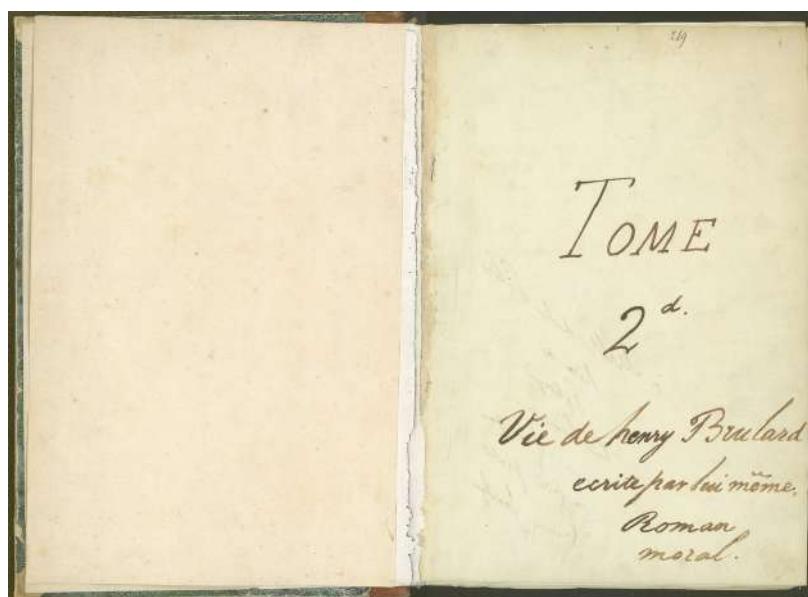 249
TOME
2d.
Vie de henry Brulard
ecrite par lui même.
Roman
moral.